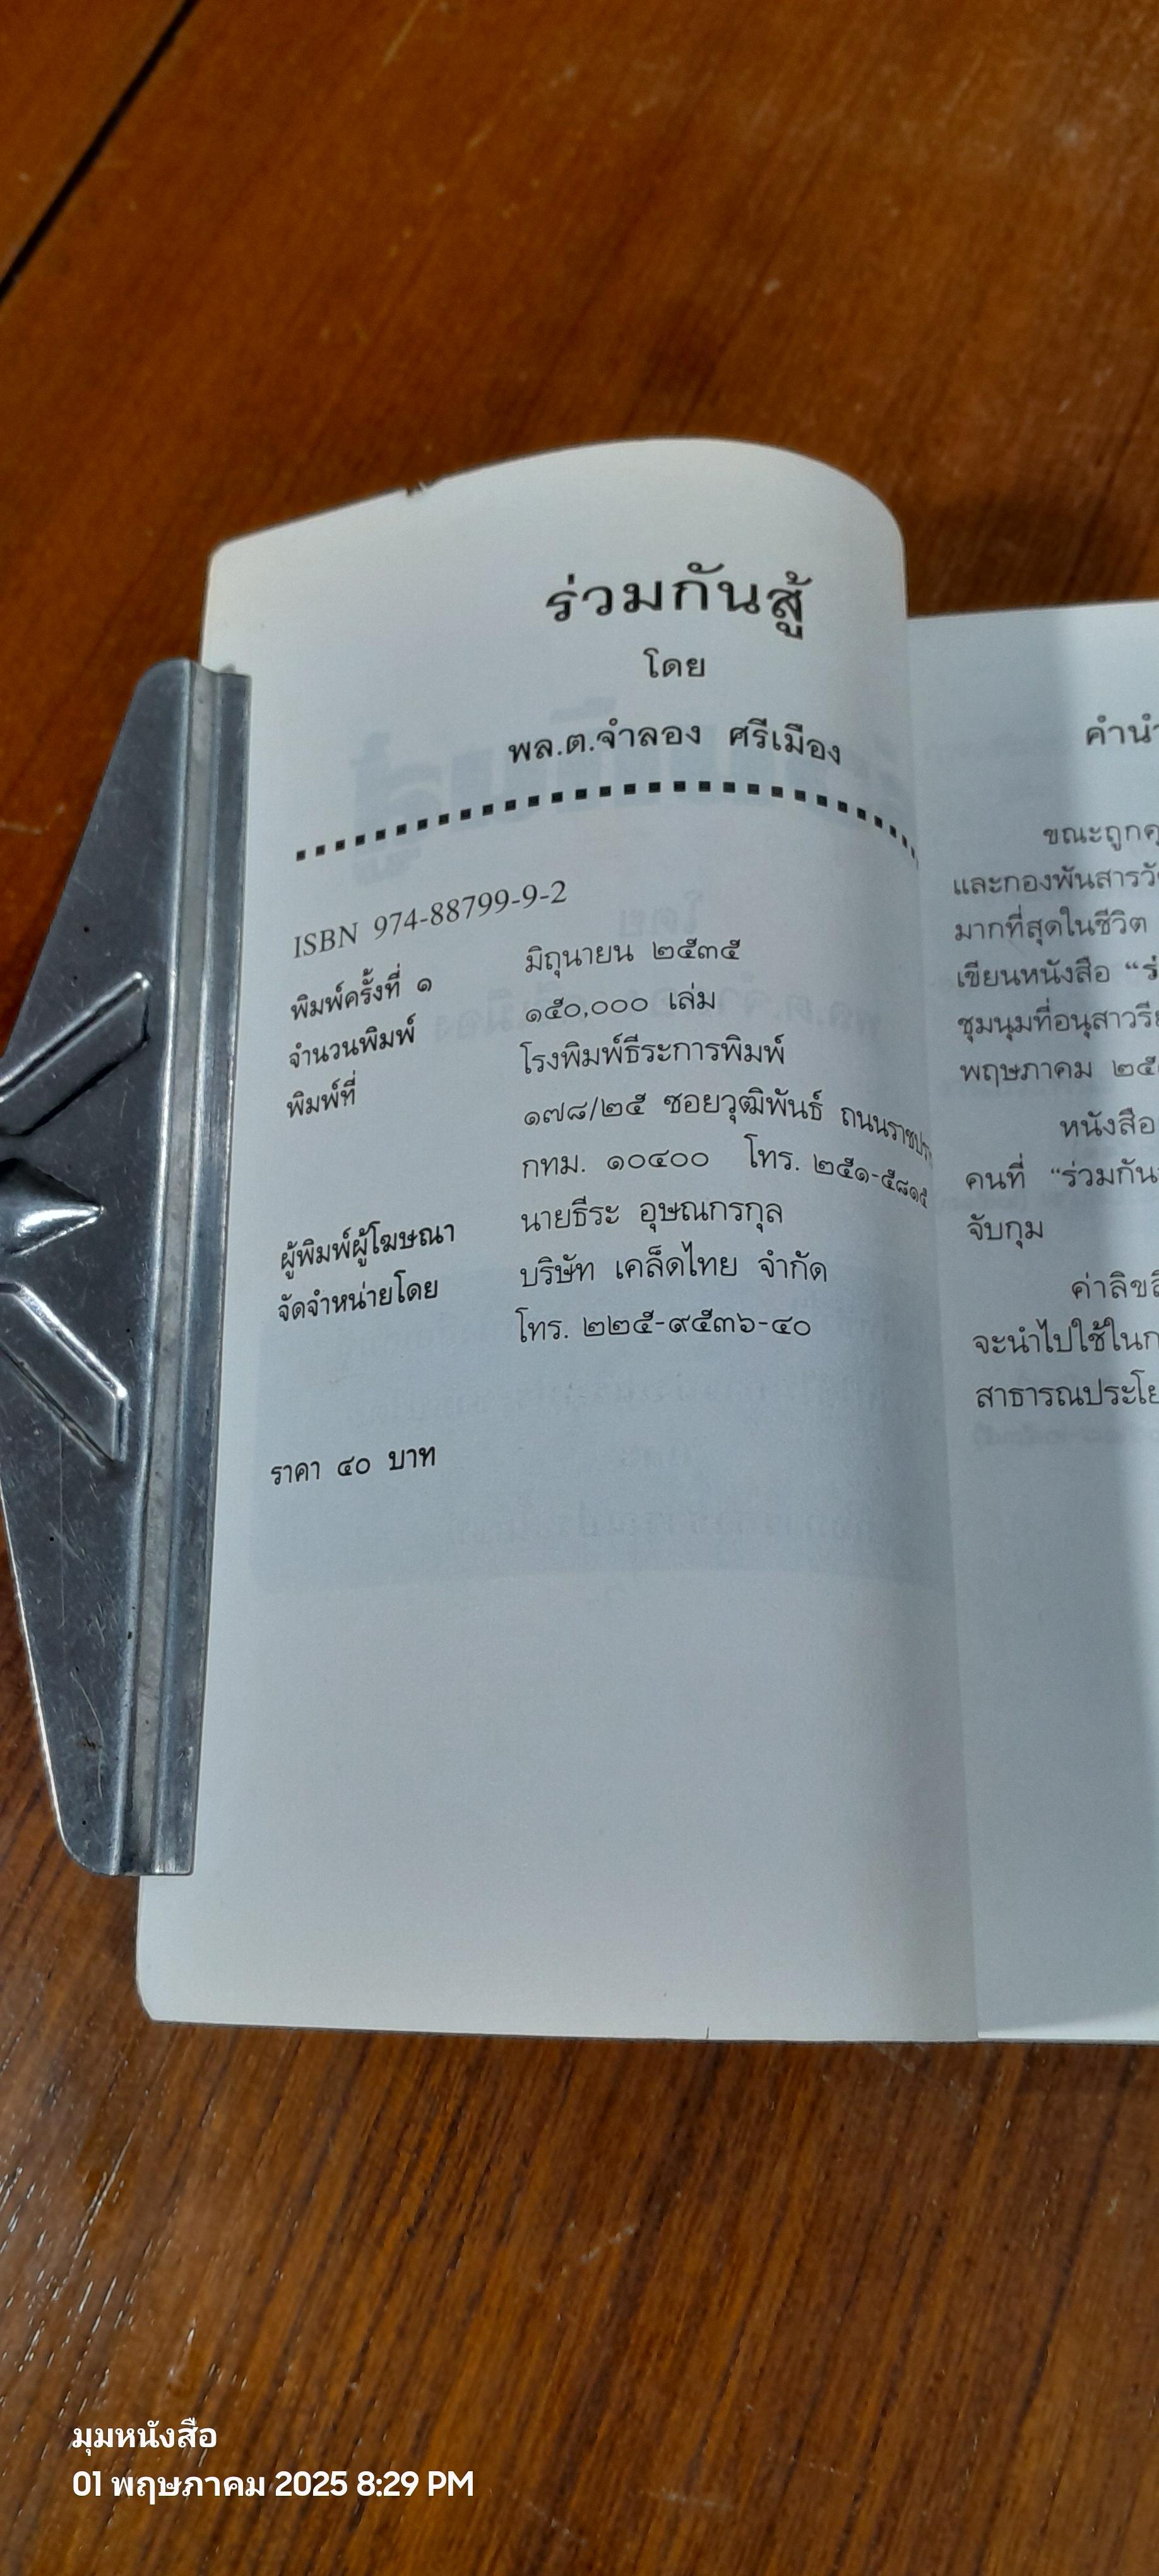 ร่วมกันสู้
โดย
พล.ต.จำลอง ศรีเมือง
ISBN 974-88799-9-2
พิมพ์ครั้งที่ ๑ มิถุนายน ๒๕๓๕
จำนวนพิมพ์ ๑๕๐,๐๐๐ เล่ม
พิมพ์ที่ โรงพิมพ์ธีระการพิมพ์
๑๗๘/๒๕ ซอยวุฒิพันธ์
กทม. ๑๐๔๐๐ โทร. ๒๕๑-๕๘๑๕
ผู้พิมพ์ผู้โฆษณา นายธีระ อุษณกรกุล
จัดจำหน่ายโดย บริษัท เคล็ดไทย จำกัด
โทร. ๒๒๕-๙๕๓๖-๔๐
ราคา ๔๐ บาท
คำนำ
ขณะถูกค
และกองพันสารวั
มากที่สุดในชีวิต
เขียนหนังสือ “ร่
ชุมนุมที่อนุสาวรีย
พฤษภาคม ๒๕
หนังสือ
คนที่ “ร่วมกัน
จับกุม
ค่าลิขสิ
จะนำไปใช้ในก
สาธารณประโย
มุมหนังสือ
01 พฤษภาคม 2025 8:29 PM